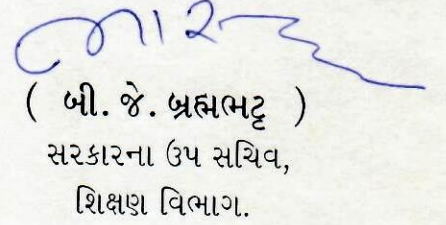 ( બી. જે. બ્રહ્મભટ્ટ )
સરકારના ઉપ સચિવ,
શિક્ષણ વિભાગ.